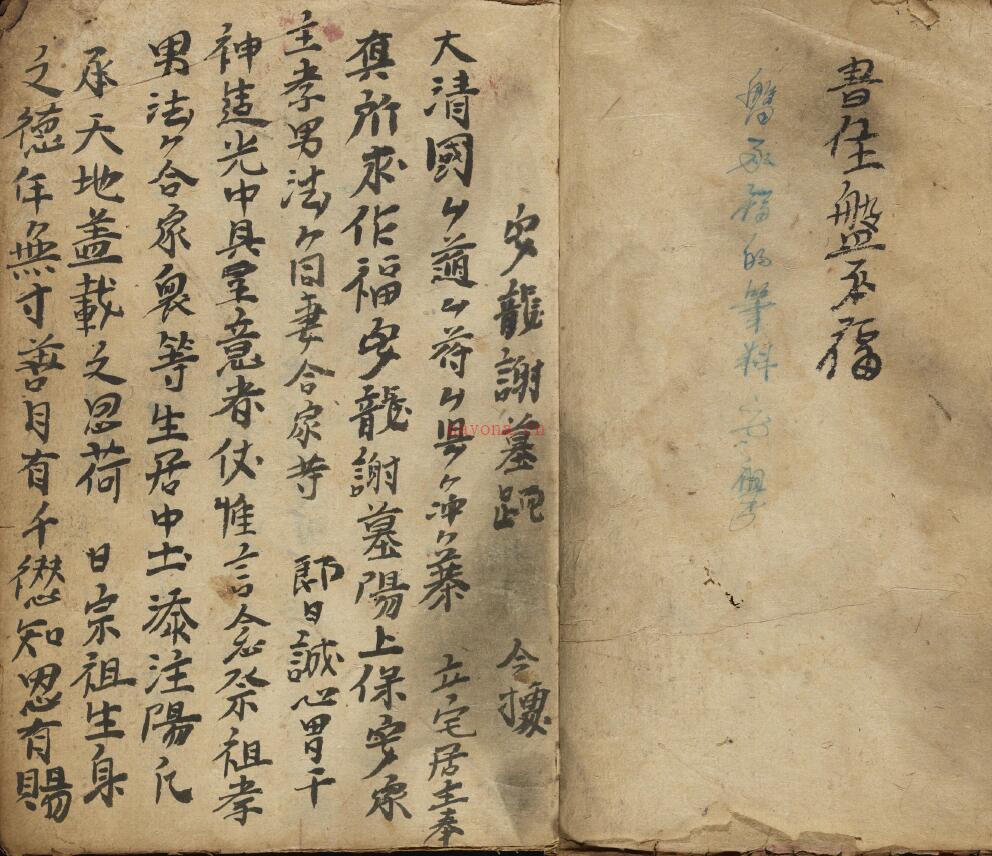 書住盤本福
的筆料
安龍謝墓 今據
大清國ㄙ道ㄙ府ㄙ县ㄙ冲ㄙ寨 立宅居主奉
真所求作福安龍謝墓陽上保安眾
主孝男法ㄙ同妻合家等 即日誠心冒干
神造光中具呈意者伏惟言念祭祖孝
男法ㄙ合家衆等生居中土添注陽凡
承天地盖載之恩荷 日宗祖生身
之德年無寸善月有千愆知恩有賜
kayona.cn